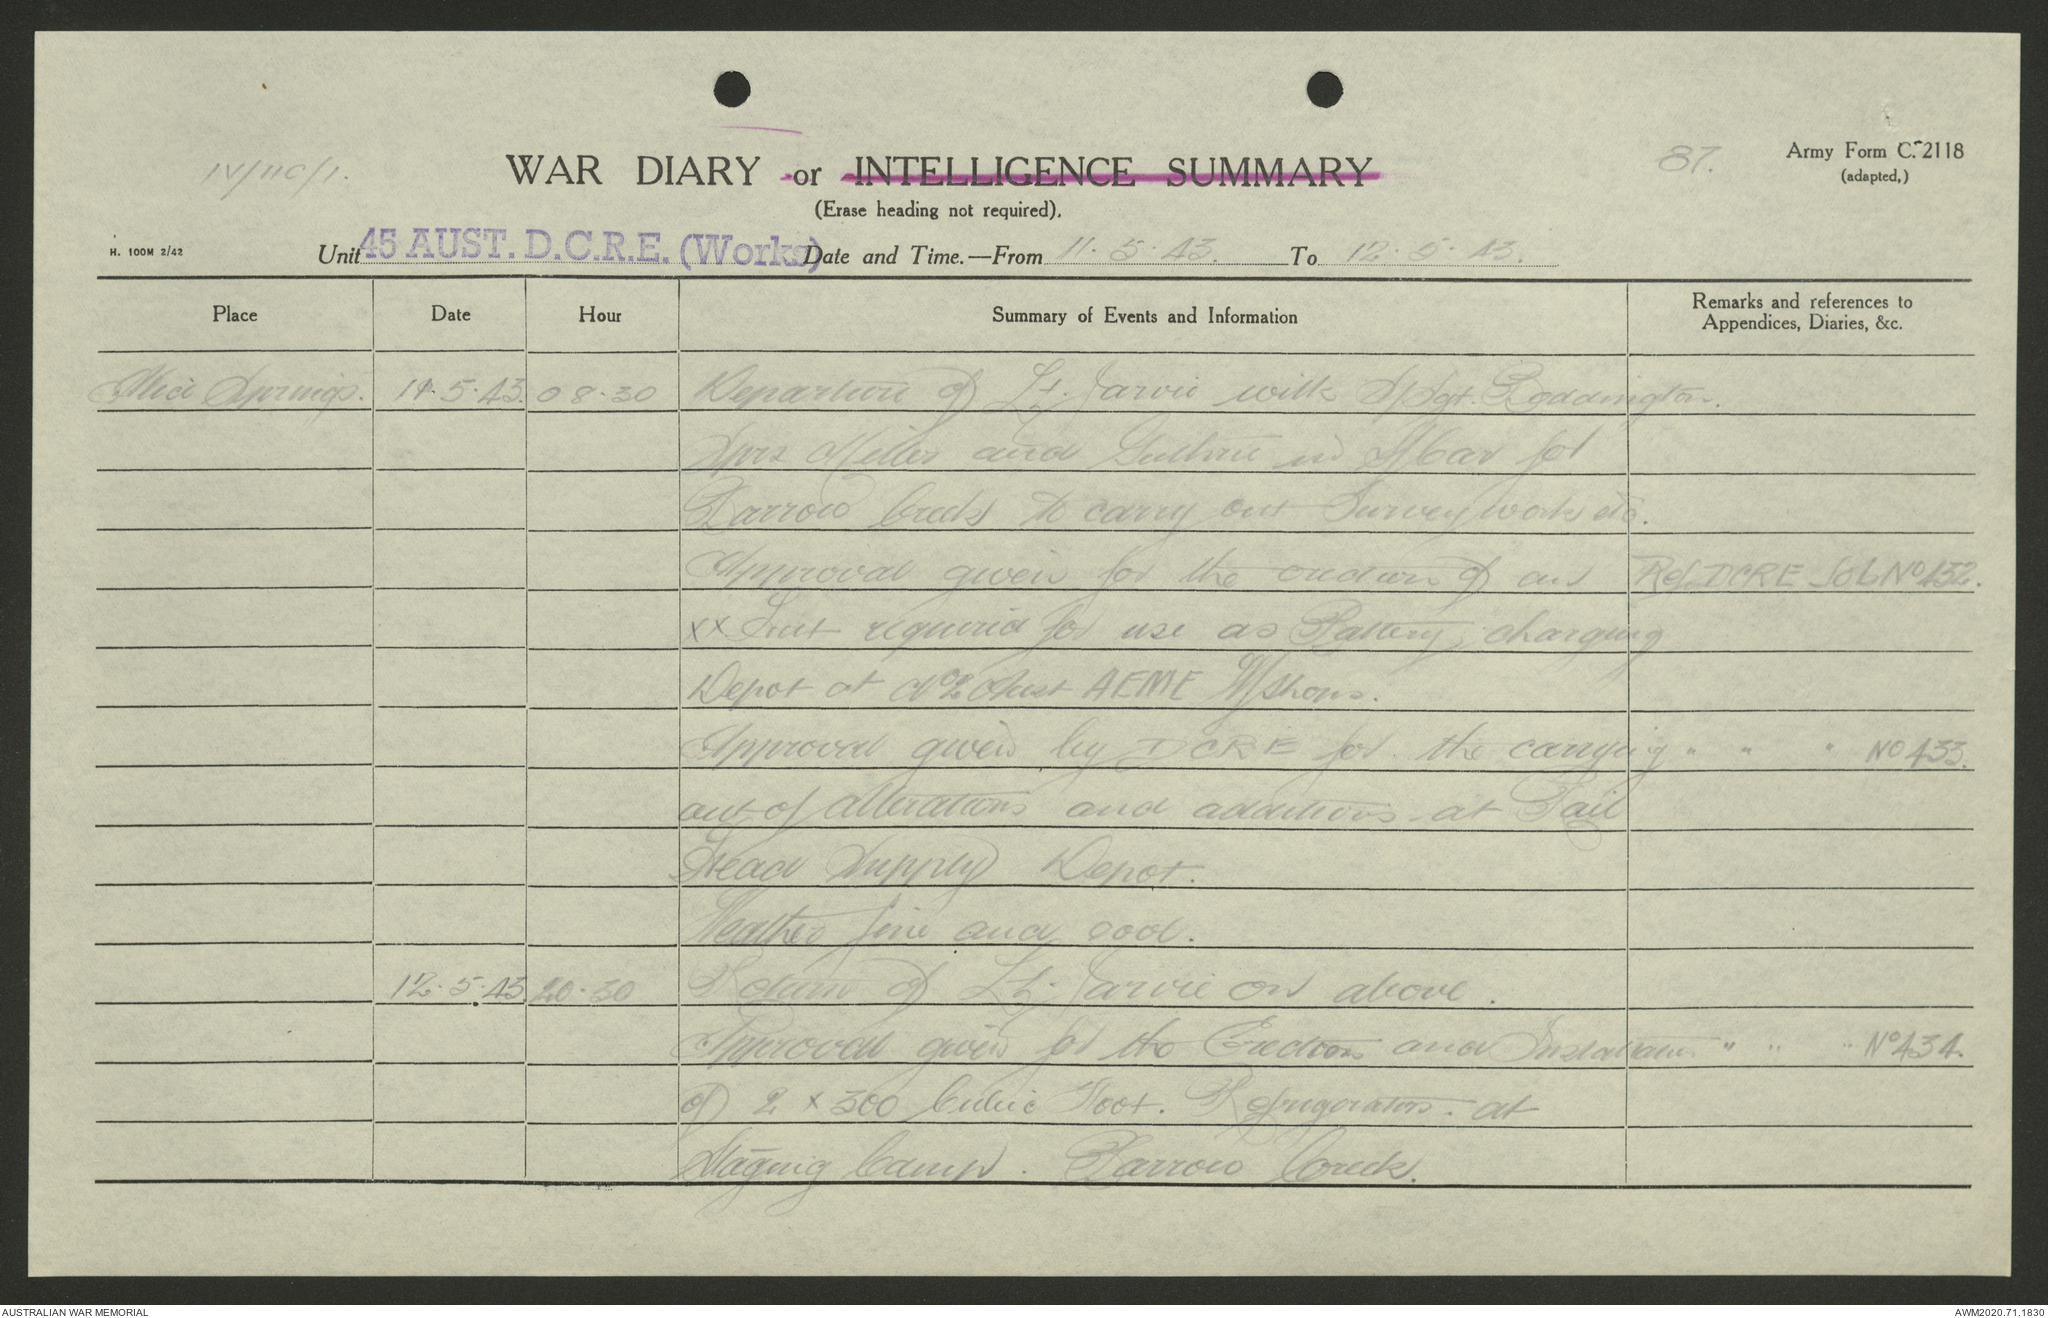 IV/110/1.
87.
Army Form C. 2118
(adapted,)
WAR DIARY or INTELLIGENCE SUMMARY
(Erase heading not required).
H. 100M 2/42
Unit 45 AUST. D.C.R.E. (Works) Date and Time.—From 11.5.43. To 12.5.43.
Place Date Hour Summary of Events and Information Remarks and references to
Appendices, Diaries, &c.
Alice Springs. 11.5.43. 08.30 Departure of Lt. Jarvie with S/Sgt. Boddington.
Sprs Miller and Guthrie in S/Car for
Barrow Creek to carry out Survey work etc.
Approval given for the erection of an Ref. DCRE No 432.
xx required for use as Battery charging
Depot at No 2 Aust AEME W/Shops.
Approval given by DCRE for the carrying " " " No 433.
out of alterations and additions at Rail
Head Supply Depot.
Weather fine and cool.
12.5.43 20.30 Return of Lt. Jarvie on above.
Approval given for the Erection and Installation " " " No 434.
of 2 x 300 Cubic Foot. Refrigerators. at
Staging Camp. Barrow Creek.
AUSTRALIAN WAR MEMORIAL
AWM2020.71.1830